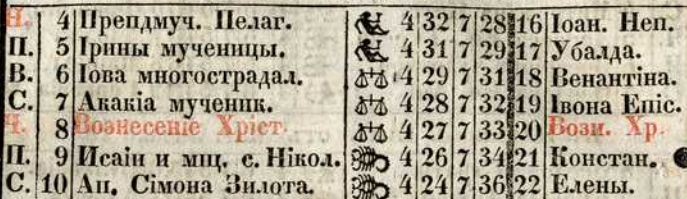 Н. 4 Препдмуч. Пелаг. 4 32 7 28 16 Іоан. Неп.
П. 5 Ірины мученицы. 4 31 7 29 17 Убалда.
В. 6 Іова многострадал. 4 29 7 31 18 Венантіна.
С. 7 Акакіа мученик. 4 28 7 32 19 Івона Епіс.
Ч. 8 Вознесеніе Хріст. 4 27 7 33 20 Возн. Хр.
П. 9 Исаіи и мщ. с. Нікол. 4 26 7 34 21 Констан.
С. 10 Ап. Сімона Зилота. 4 24 7 36 22 Елены.